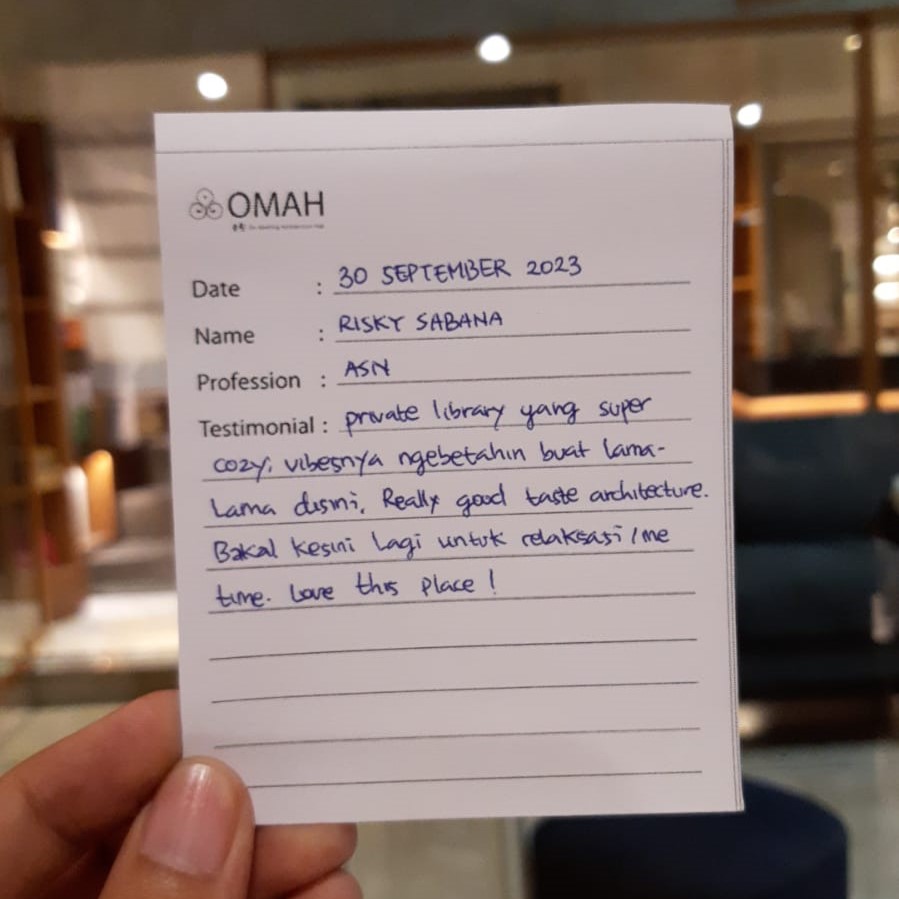 OMAH
Date : 30 SEPTEMBER 2023
Name : RISKY SABANA
Profession : ASN
Testimonial : private library yang super
cozy, vibesnya ngebetahin buat lama-
lama disini, Really good taste architecture.
Bakal kesini lagi untuk relaksasi/me
time. Love this place!